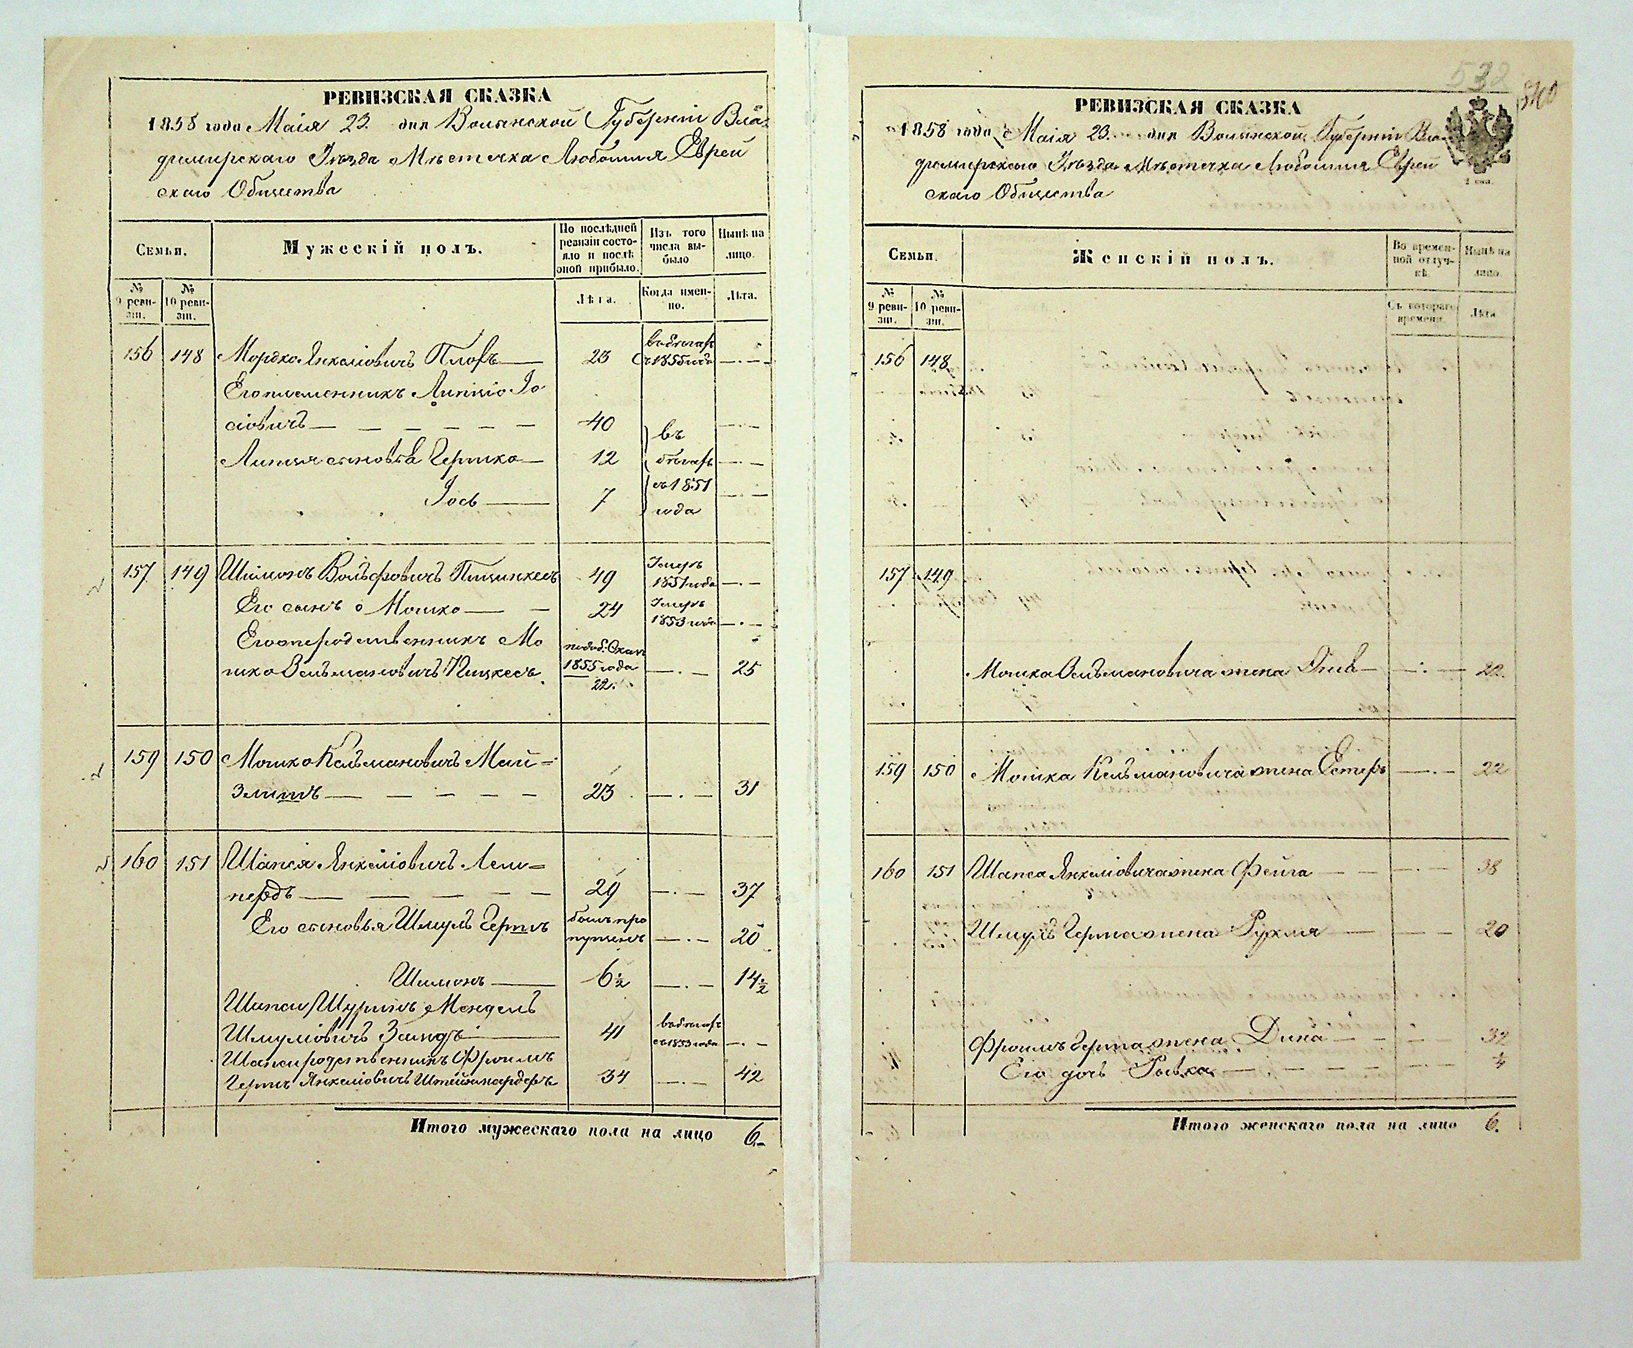 РЕВИЗСКАЯ СКАЗКА
1858 года Маія 23 дня Волынской Губерніи Вла-
димирскаго Уѣзда Мѣстечка Любомля Еврей
скаго Общества
Семьи.
Мужескій полъ.
По послѣдней ревизіи состояло и послѣ оной прибыло.
Изъ того числа выбыло
Нынѣ на лицо.
№ 9 ревизіи.
№ 10 ревизіи.
Лѣта.
Когда именно.
Лѣта.
156 148 Мордко Янкеліовичъ 23 въ бѣгахъ съ 1855 года
Его племянникъ
сіовичъ 40 въ
сыновья Гершко 12 бѣгахъ
Іось 7 съ 1851 года
157 149 Шимонъ Вольфовичъ 49 Умеръ 1851 года
Его сынъ Мошко 24 Умеръ 1853 года
Его родственникъ Мо
шко 1855 года 22 25
159 150 Мошко Кельмановичъ Май-
зликъ 23 31
160 151 Шапся Янкеліовичъ Лем-
пердъ 29 37
Его сыновья Шмуль Гершъ былъ пропущенъ 20
Шимонъ 6½ 14½
Шапси Шуринъ Мендель
Шмуліовичъ 41 въ бѣгахъ съ 1853 года
Шапси родственникъ Фроимъ
Гершъ Янкеліовичъ 34 42
Итого мужескаго пола на лицо 6.
532
540
РЕВИЗСКАЯ СКАЗКА
1858 года Маія 23 дня Волынской Губерніи Вла-
димирскаго Уѣзда Мѣстечка Любомля Еврей
скаго Общества
Семьи.
Женскій полъ.
Во временной отлучкѣ.
Нынѣ на лицо.
№ 9 ревизіи.
№ 10 ревизіи.
Съ котораго времени
Лѣта
156 148
157 149
Мошка жена 22
159 150 Мошка Кельмановича жена Естеръ 22
160 151 Шапса Янкеліовича жена Фейга 38
Шмуль Герша жена Рухля 20
Фроимъ Герша жена Дина 32
Его дочь Ривка ¼
Итого женскаго пола на лицо 6.